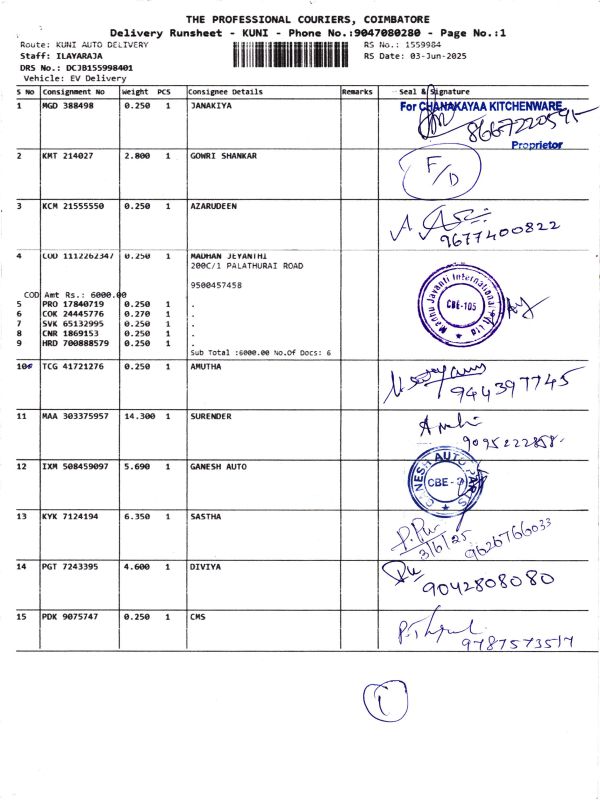 THE PROFESSIONAL COURIERS, COIMBATORE
Delivery Runsheet - KUNI - Phone No.:9047080280 - Page No.:1
Route: KUNI AUTO DELIVERY RS No.: 1559984
Staff: ILAYARAJA RS Date: 03-Jun-2025
DRS No.: DCJB155998401
Vehicle: EV Delivery
S No Consignment No Weight PCS Consignee Details Remarks Seal & Signature
1 MGD 388498 0.250 1 JANAKIYA For CHANAKAYAA KITCHENWARE
8667220591
Proprietor
2 KMT 214027 2.800 1 GOWRI SHANKAR F/D
3 KCM 21555550 0.250 1 AZARUDEEN
9677400822
4 COD 1112262347 0.250 1 MADHAN JEYANTHI
200C/1 PALATHURAI ROAD
9500457458
CBE-105
COD Amt Rs.: 6000.00
5 PRO 17840719 0.250 1 .
6 COK 24445776 0.270 1 .
7 SVK 65132995 0.250 1 .
8 CNR 1869153 0.250 1 .
9 HRD 700888579 0.250 1 .
Sub Total :6000.00 No.Of Docs: 6
10 TCG 41721276 0.250 1 AMUTHA
944397745
11 MAA 303375957 14.300 1 SURENDER
9095222858
12 IXM 508459097 5.690 1 GANESH AUTO GANESH AUTO
CBE -
13 KYK 7124194 6.350 1 SASTHA
3/6/25 9626766033
14 PGT 7243395 4.600 1 DIVIYA
9042808080
15 PDK 9075747 0.250 1 CMS
9787573517